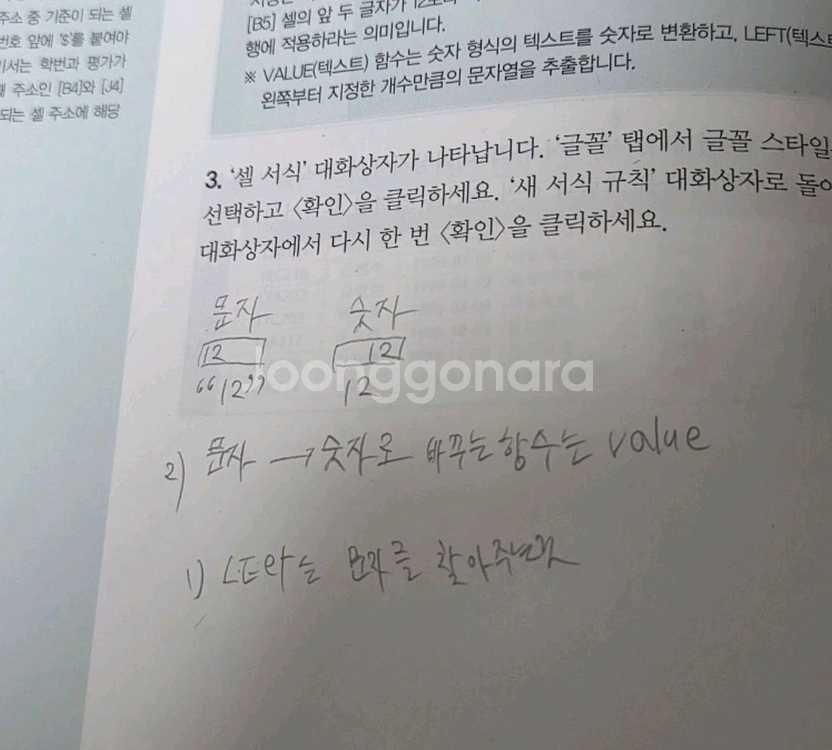 주소 중 기준이 되는 셀
번호 앞에 '$'를 붙여야
서는 학번과 평가가
주소인 [B4]와 [J4]
되는 셀 주소에 해당
[B5] 셀의 앞 두 글자가
행에 적용하라는 의미입니다.
※ VALUE(텍스트) 함수는 숫자 형식의 텍스트를 숫자로 변환하고, LEFT(텍스트
왼쪽부터 지정한 개수만큼의 문자열을 추출합니다.
3. '셀 서식' 대화상자가 나타납니다. '글꼴' 탭에서 글꼴 스타일
선택하고 〈확인〉을 클릭하세요. '새 서식 규칙' 대화상자로 돌아
대화상자에서 다시 한 번 〈확인〉을 클릭하세요.
문자 숫자
12 12
"12" 12
joonggonara
2) 문자 → 숫자로 바꾸는 함수는 value
1) 문자를 찾아주는